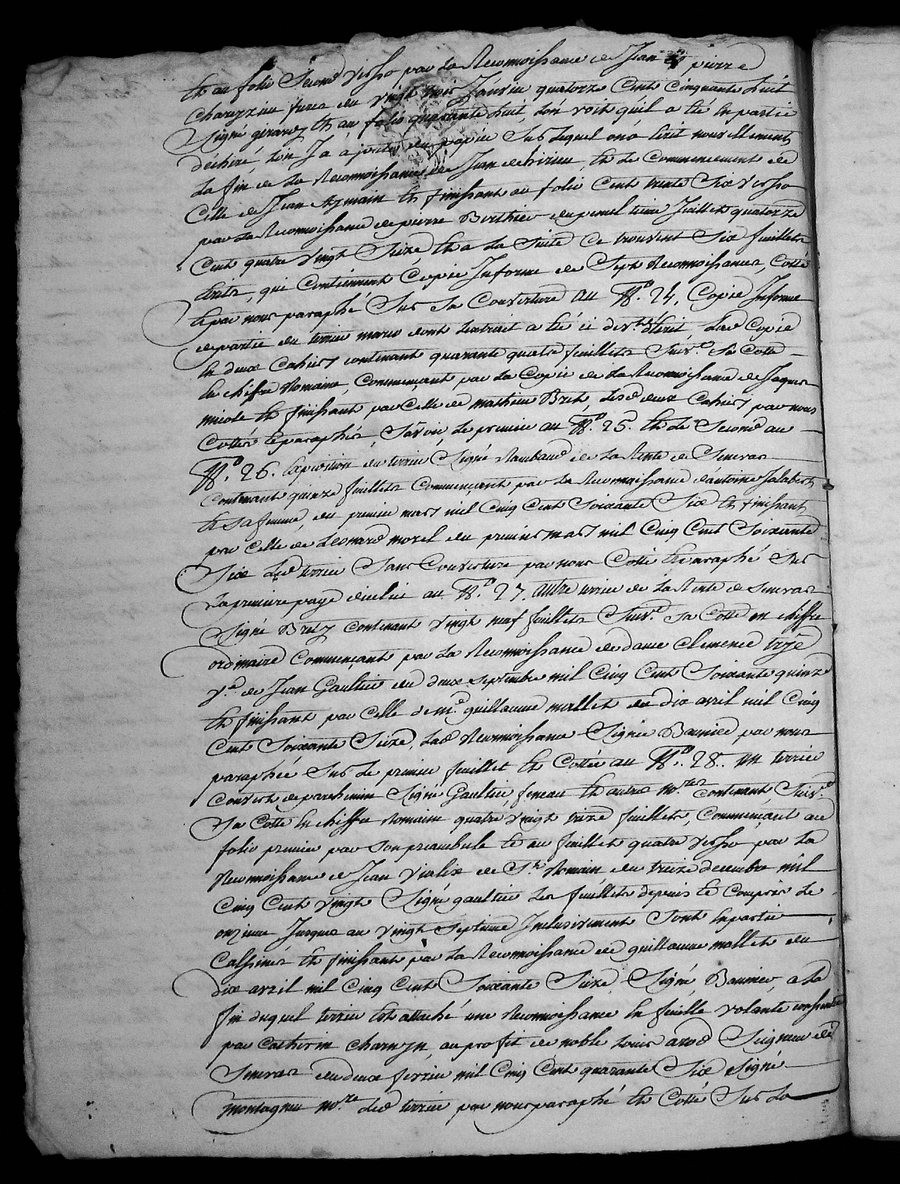 et au folio second verso par la Reconnoissance de Jean et pierre
Charezieu freres du vingt mars Janvier quatorze Cents Cinquante huit
Signé girard et au folio quarante huit, lon voit quil a été en partie
dechiré lon Ja ajouté du papier Sur lequel on a Ecrit nouvellement
la fin de La Reconnoissance de Jean et le Commencement de
Celle de Jean et finissant au folio Cent trente Six verso
par La Reconnoissance de pierre Berthier du penul tieme Juillet quatorze
Cent quatre vingt Seize et a La Suitte Se trouvent Six feuillets
Ecrits, qui Contiennent Copie Informe de Sept Reconnoissances, Cotté
et par nous paraphé Sur Sa Couverture au N.o 24, Copie Informe
de partie du terrier dont lextrait a été ci Ecrit Lad. Copie
en deux Cahiers contenant quarante quatre feuillets Suiv.t Sa Cotte
en chiffre Romain, Commençant par La Copie de La Reconnoissance de Jaques
micole et finissant par Celle de mathieu Bret Lesd. deux Cahiers par nous
Cottés et paraphés, Savoir Le premier au N.o 25. et Le Second au
N.o 26. Expedition du terrier Signé Rambaud de La Rente de Senevas
Contenant quinze feuillets Commençant par La Reconnoissance d'antoine Jalabert
et Sa femme du premier mars mil Cinq Cent Soixante Six et finissant
par Celle de Leonard morel du premier mars mil Cinq Cent Soixante
Six Led. terrier Sans Couverture par nous Cotté et paraphé Sur
La premiere page au N.o 27, autre terrier de La Rente de Senevas
Signé Bretz contenant vingt neuf feuillets Suiv.t Sa Cotte en chiffre
ordinaire Commençant par La Reconnoissance de dame Clemence
V.e de Jean Gaultier du deux Septembre mil Cinq Cent Soixante quinze
et finissant par Celle de m.e guillaume mallet du dix avril mil Cinq
Cent Soixante Seize, Lad. Reconnoissance Signée Bannier par nous
paraphée Sur Le premier feuillet et Cottée au N.o 28. un terrier
Couvert de parchemin Signé Gaultier et autres no.res contenant Suiv.t
Sa Cotte en chiffre Romain quatre vingt treize feuillets Commençant au
folio premier par Son preambule et au feuillet quatre verso par La
Reconnoissance de Jean Vialix de S.t Romain du treize decembre mil
Cinq Cent vingt Signé gaultier Les feuillets depuis et Compris Le
onzieme Jusques au vingt Septieme Inclusivement Sont en partie
et finissant par La Reconnoissance de guillaume mallet du
dix avril mil Cinq Cent Soixante Seize, Signé Bannier, a la
fin duquel terrier Est attaché une Reconnoissance en feuille volante
par Catherin Charezin, au profit de noble Louis arod Seigneur de
Senevas du deux fevrier mil Cinq Cent quarante Six Signé
montagnier no.re Led. terrier par nous paraphé et Cotté Sur La